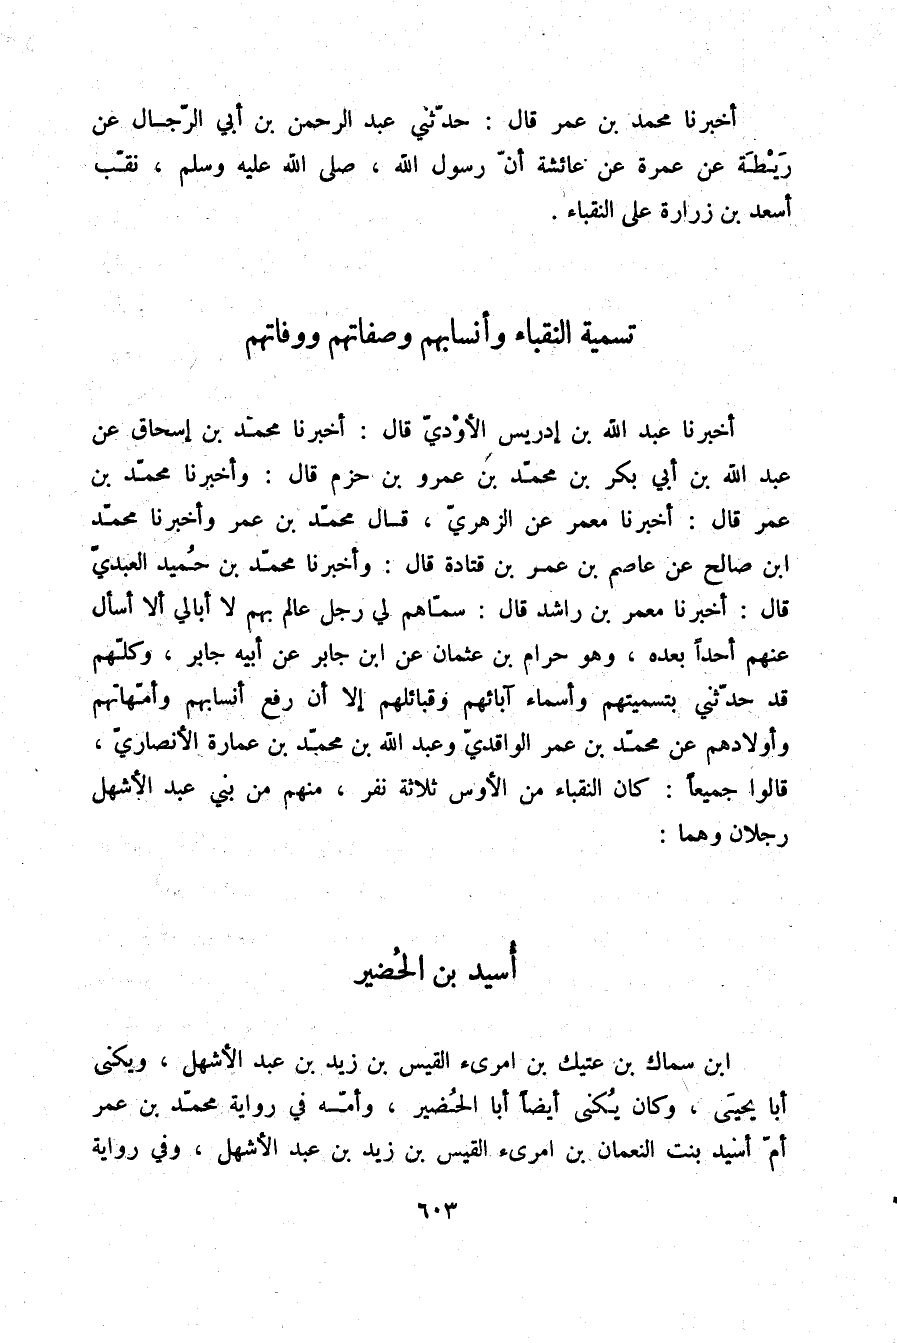 أخبرنا محمد بن عمر قال : حدّثني عبد الرحمن بن أبي الرّجال عن
رَيْطَة عن عمرة عن عائشة أنّ رسول الله ، صلى الله عليه وسلم ، نقّب
أسعد بن زرارة على النقباء .
تسمية النقباء وأنسابهم وصفاتهم ووفاتهم
أخبرنا عبد الله بن إدريس الأوْديّ قال : أخبرنا محمّد بن إسحاق عن
عبد الله بن أبي بكر بن محمّد بن عمرو بن حزم قال : وأخبرنا محمّد بن
عمر قال : أخبرنا معمر عن الزهريّ ، قال محمّد بن عمر وأخبرنا محمّد
ابن صالح عن عاصم بن عمر بن قتادة قال : وأخبرنا محمّد بن حُميد العبديّ
قال : أخبرنا معمر بن راشد قال : سمّاهم لي رجل عالم بهم لا أبالي ألا أسأل
عنهم أحداً بعده ، وهو حرام بن عثمان عن ابن جابر عن أبيه جابر ، وكلّهم
قد حدّثني بتسميتهم وأسماء آبائهم وقبائلهم إلا أن رفع أنسابهم وأمّهاتهم
وأولادهم عن محمّد بن عمر الواقديّ وعبد الله بن محمّد بن عمارة الأنصاريّ ،
قالوا جميعاً : كان النقباء من الأوس ثلاثة نفر ، منهم من بني عبد الأشهل
رجلان وهما :
أُسيد بن الحُضير
ابن سماك بن عتيك بن امرىء القيس بن زيد بن عبد الأشهل ، ويكنى
أبا يحيَى ، وكان يُكنى أيضاً أبا الحُضير ، وأمّه في رواية محمّد بن عمر
أمّ أسيد بنت النعمان بن امرىء القيس بن زيد بن عبد الأشهل ، وفي رواية
٦٠٣